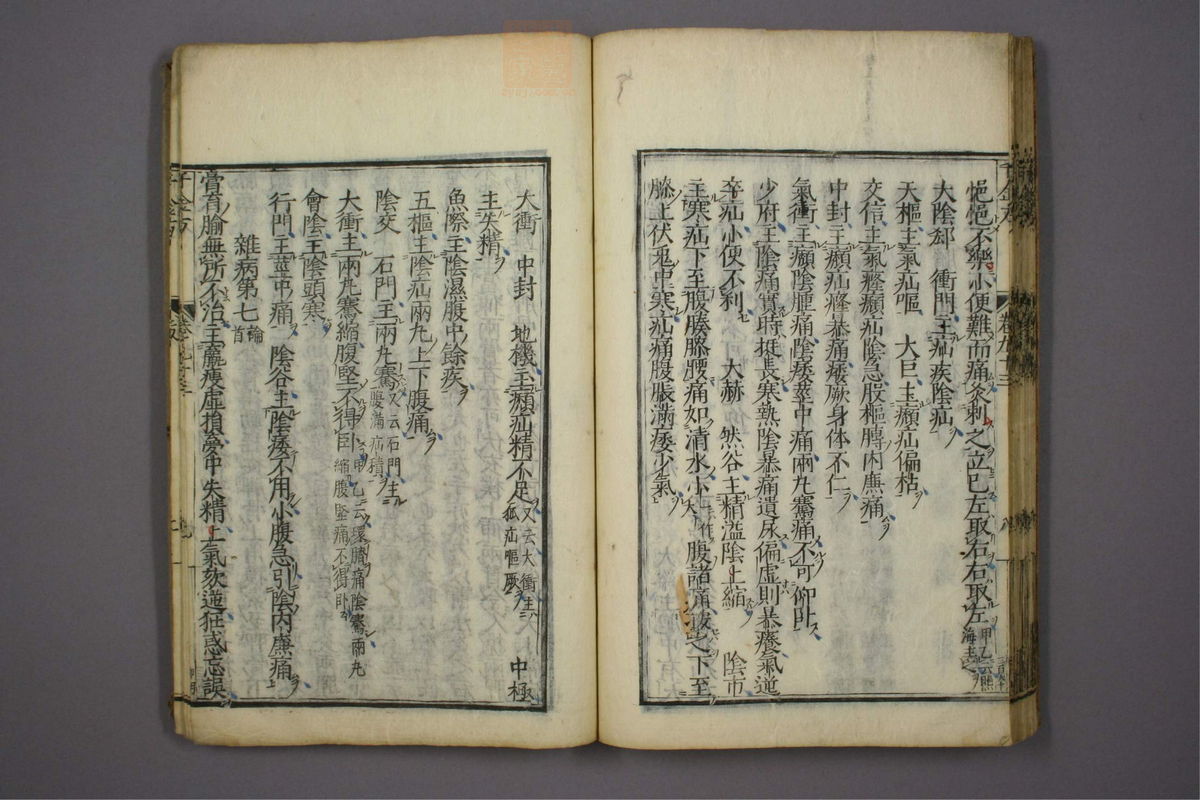 悒悒不樂小便難而痛灸刺之立已左取右右取左甲乙云照海主之
大陰郄　衝門主疝疾陰疝
天樞主氣疝嘔　大巨主㿗疝偏枯
交信主氣癃㿗疝陰急股樞膊内廉痛
中封主㿗疝癃暴痛痿厥身体不仁
氣衝主㿗陰腫痛陰痿莖中痛兩丸騫痛不可仰卧
少府主陰痛實時挺長寒熱陰暴痛遺尿偏虚則暴癢氣逆
卒疝小便不利　大赫　然谷主精溢陰上縮　陰市
主寒疝下至腹腠膝腰痛如清水小大一作腹諸疝按之下至
膝上伏兎中寒疝痛腹脹滿痿少氣
大衝　中封　地機主㿗疝精不足又云大衝主狐疝嘔厥　中極
主失精
魚際主陰濕腹中餘疾
五樞主陰疝兩丸上下腹痛
陰交　石門主兩丸騫又云石門主腹滿疝積
大衝主兩丸騫縮腹堅不得卧甲乙云環臍痛陰騫兩丸縮腹堅痛不得卧
會陰主陰頭寒
行門主莖中痛　陰谷主陰痿不用小腹急引陰内廉痛
雜病第七論一首
膏肓腧無所不治主羸瘦虚損夢中失精上氣欬逆狂惑忘誤